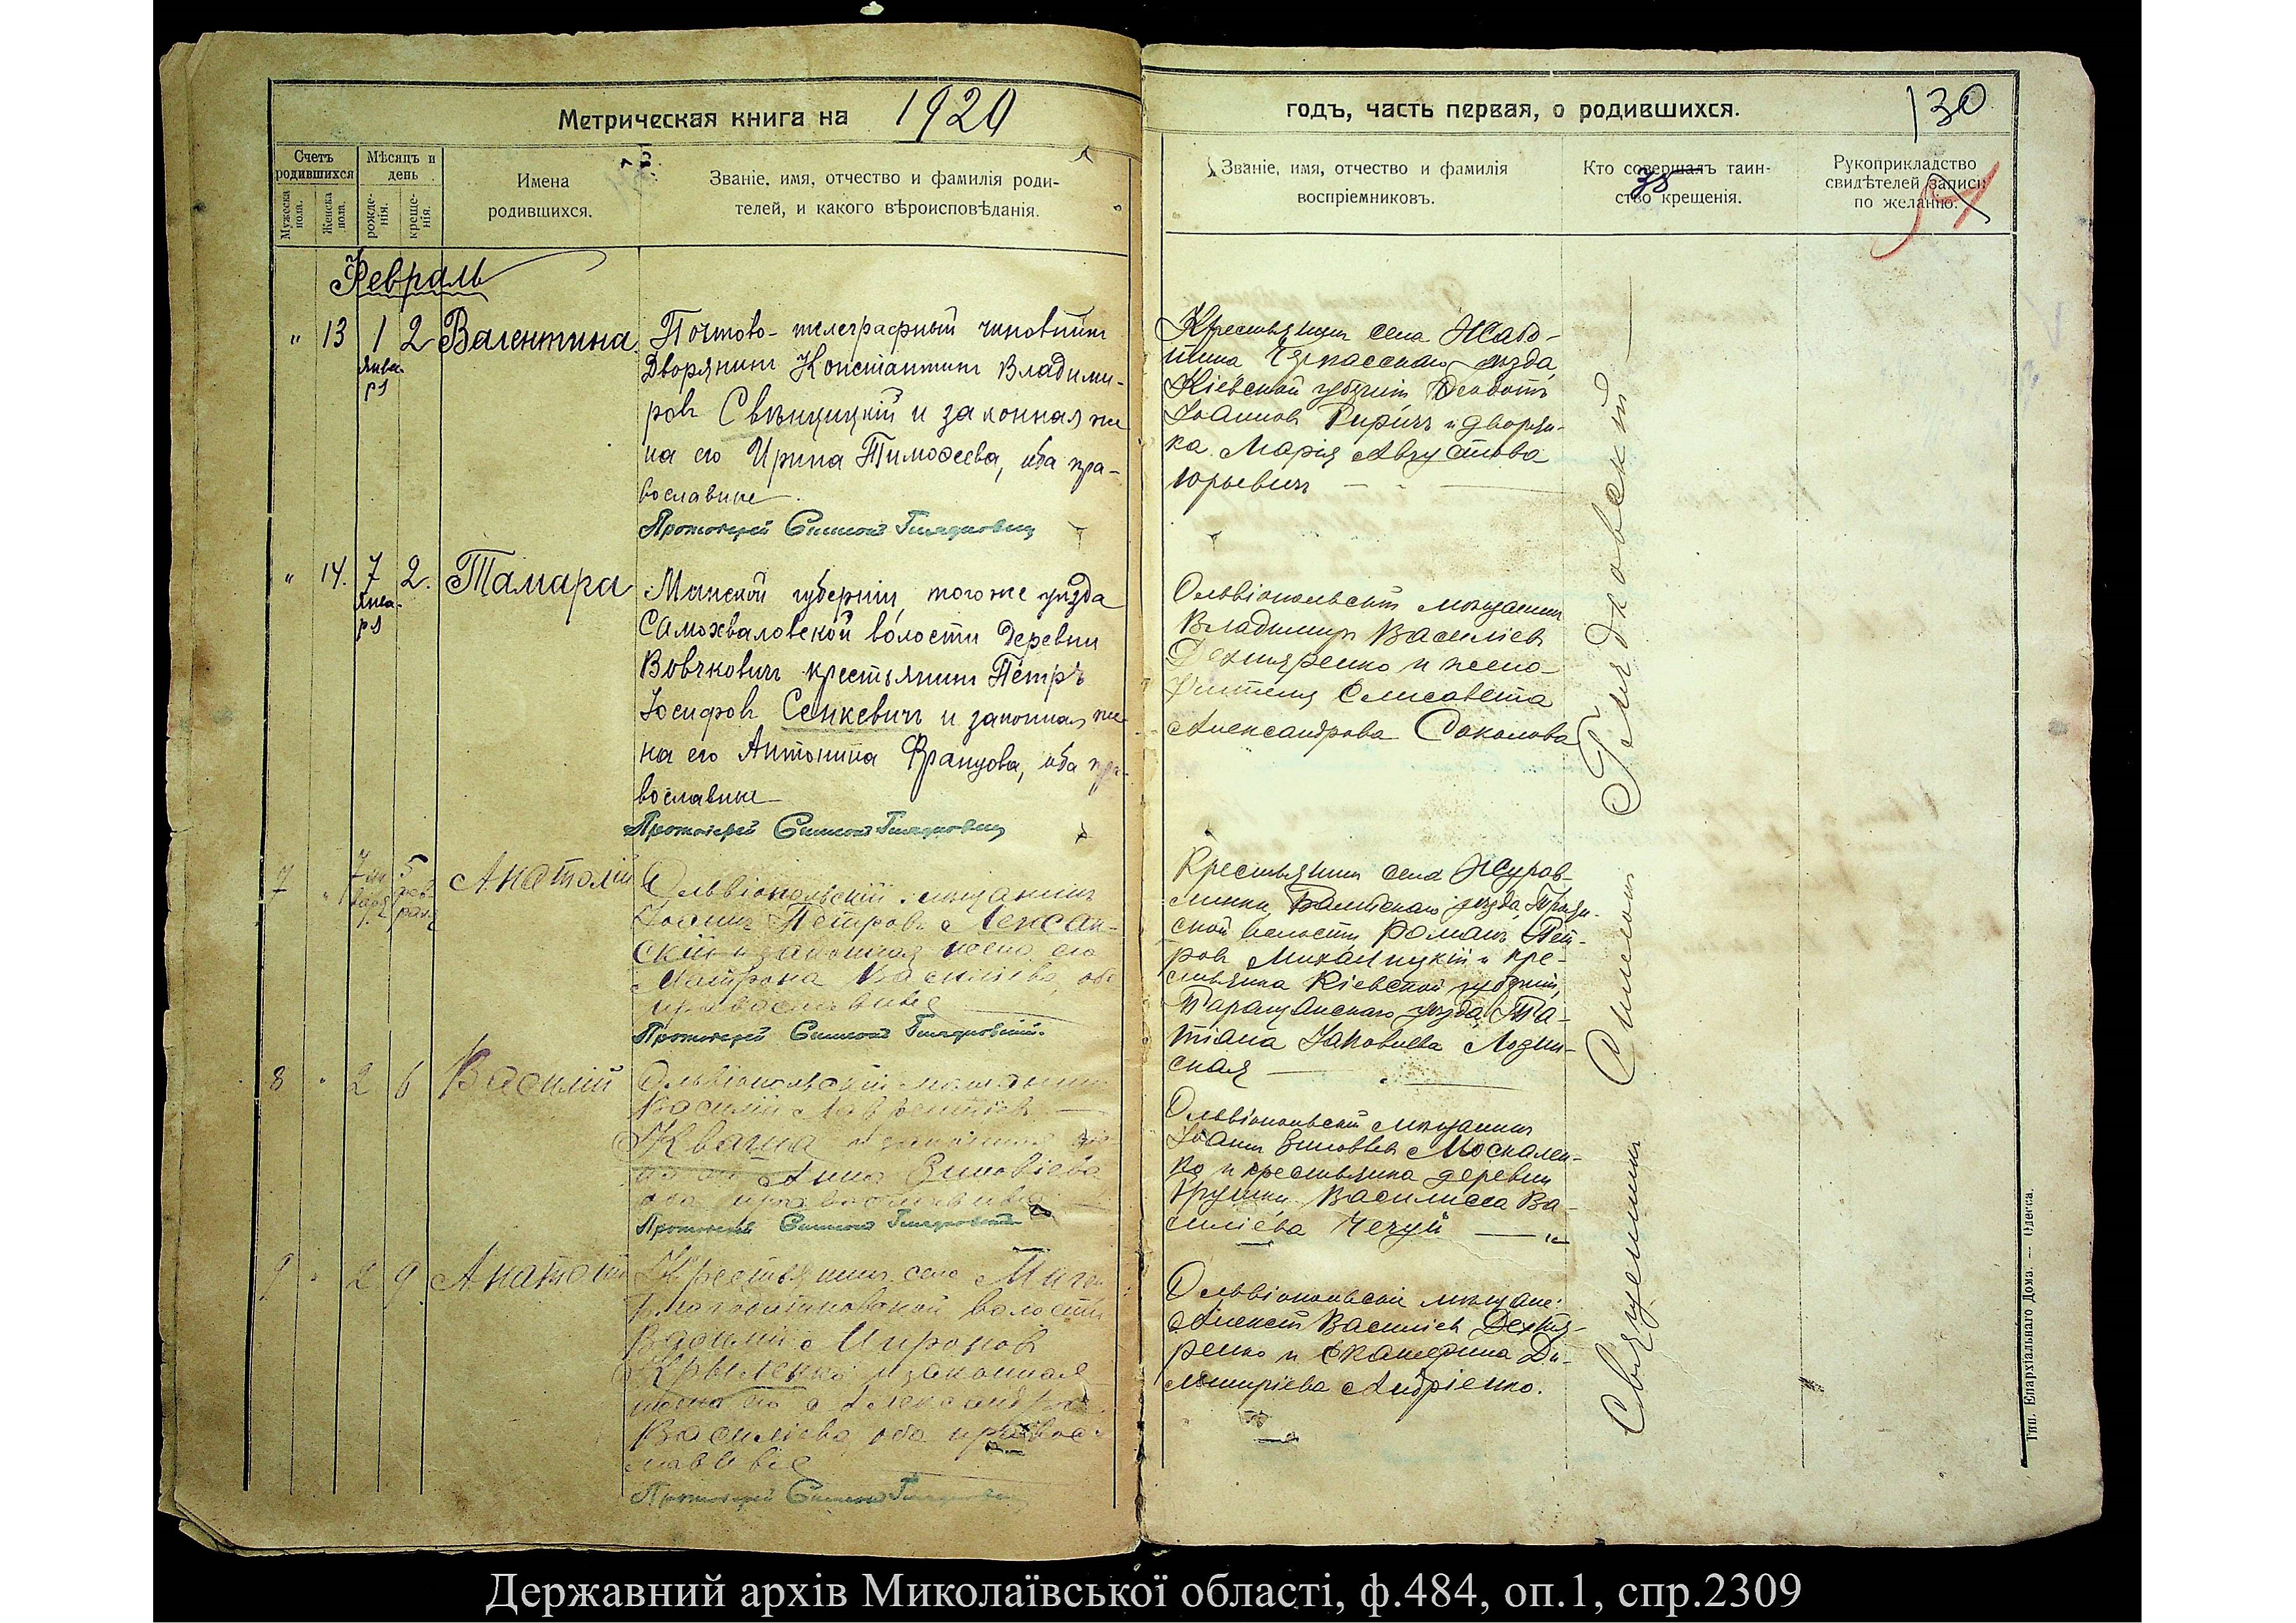 Метрическая книга на 1920
годъ, часть первая, о родившихся.
130
Счетъ родившихся
Мѣсяцъ и день
Мужеска пола.
Женска пола.
рожде-нія.
креще-нія.
Имена
родившихся.
Званіе, имя, отчество и фамилія роди-
телей, и какого вѣроисповѣданія.
Званіе, имя, отчество и фамилія
воспріемниковъ.
Кто совершалъ таин-
ство крещенія.
Рукоприкладство
свидѣтелей записи
по желанію.
Февраль
" 13 1 Января 2 Валентина
Почтово-телеграфный чиновникъ
Дворянинъ Константинъ Владими-
ровъ Свѣнцицкій и законная же
на его Ирина Тимофеева, оба пра-
вославные
Протоіерей Симеонъ
Крестьянинъ села Жабо-
тина Черкасскаго уѣзда
Кіевской губерніи
Іоанновъ и дворян-
ка Марія Августова
Юрьевичъ
" 14. 7 Января 2. Тамара
Минской губерніи, того же уѣзда
Самохваловской волости деревни
Вовчковичъ крестьянинъ Петръ
Іосифовъ Сенкевичъ и законная же
на его Антонина Францова, оба пра-
вославные
Протоіерей Симеонъ
Ольвіопольскій мѣщанинъ
Владимиръ Васильевъ
Дехтяренко и
Елисавета
Александрова Соколова
7 " 5 февраля Анатолій
Ольвіопольскій мѣщанинъ
Іоаннъ Петровъ Лексан-
скій и законная жена его
Матрона Василіева, оба
православные
Протоіерей Симеонъ
Крестьянинъ села Журав-
линки, Балтскаго уѣзда,
ской волости Романъ Пет-
ровъ и кре-
стьянка Кіевской губерніи,
Таращанскаго уѣзда Та-
тіана Іаковлева Лозин-
ская
8 " 2 6 Василій
Ольвіопольскій мѣщанинъ
Василій Лаврентіевъ
Кваша и законная же-
на его Анна Зиновіева
оба православные
Протоіерей Симеонъ
Ольвіопольскій мѣщанинъ
Іоаннъ Зиновіевъ Москален-
ко и крестьянка деревни
Грушки Василисса Ва-
силіева Чечуй
9 " 2 9 Анатолій
Крестьянинъ села
Благодатновской волости
Василій Мироновъ
Крыленко и законная
жена его Александра
Василіева оба правос-
лавные
Протоіерей Симеонъ
Ольвіопольскіе мѣщане:
Алексѣй Василіевъ Дехтя-
ренко и Екатерина Ди-
митріева Андріенко.
Священникъ Симеонъ
Тип. Епархіальнаго Дома. — Одесса.
Державний архів Миколаївської області, ф.484, оп.1, спр.2309